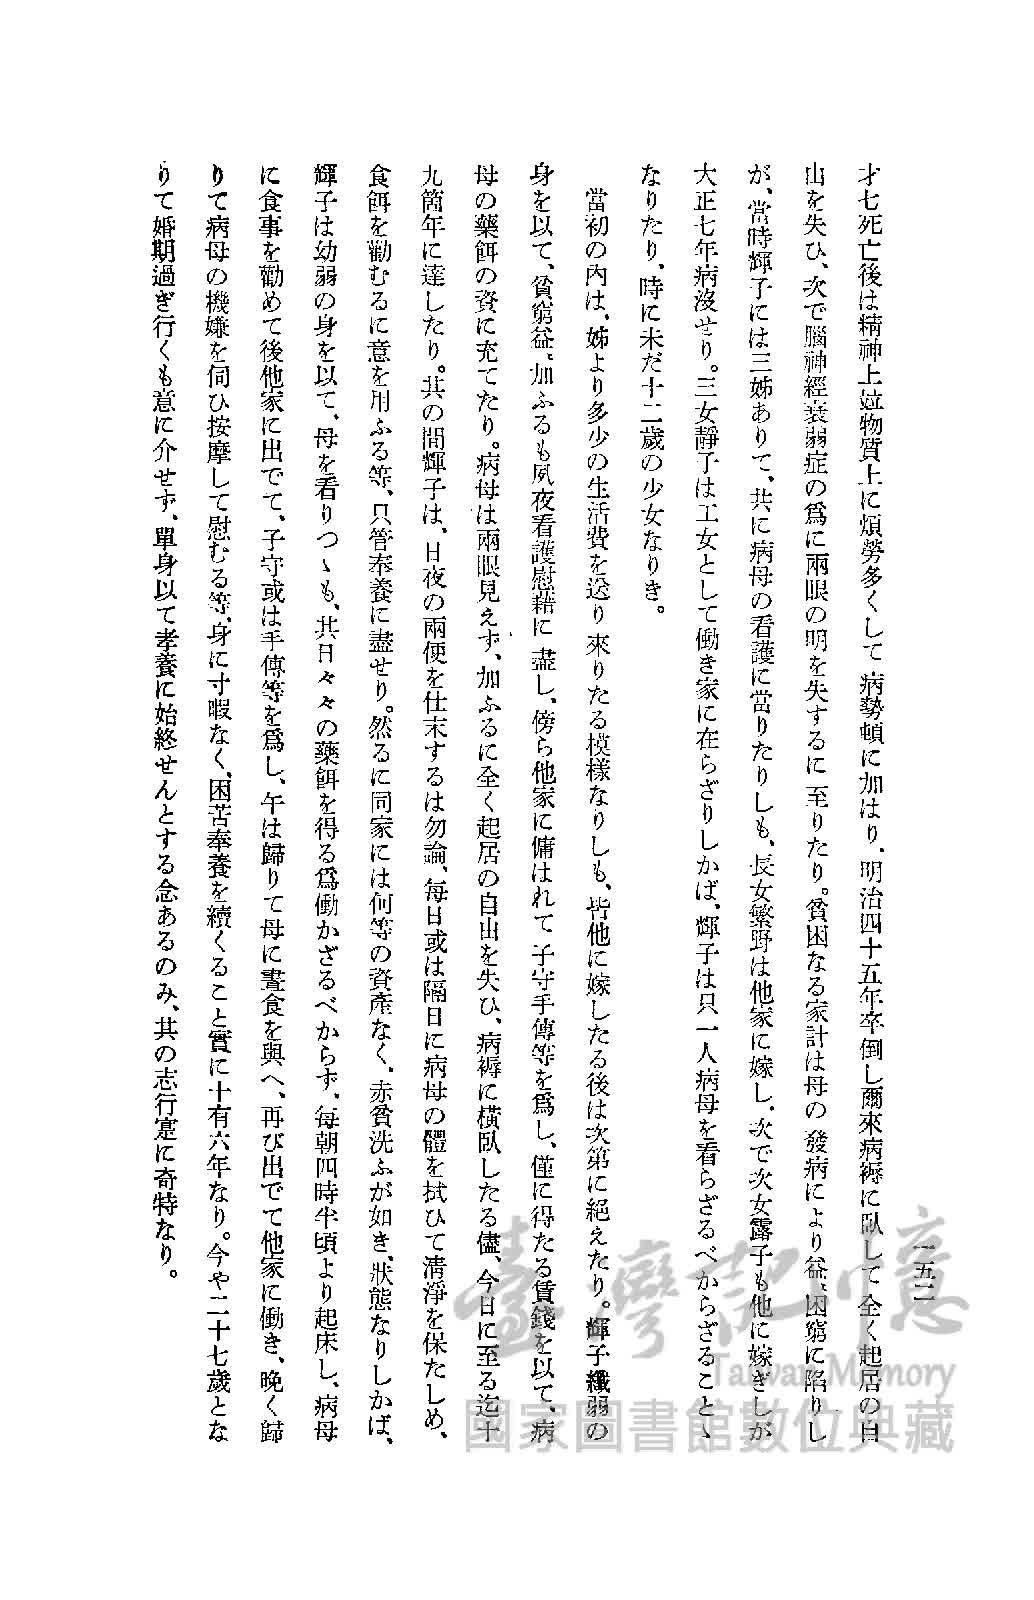 一五二
才七死亡後は精神上竝物質上に煩勞多くして病勢頓に加はり、明治四十五年卒倒し爾來病褥に臥して全く起居の自
由を失ひ、次で腦神經衰弱症の爲に兩眼の明を失するに至りたり。貧困なる家計は母の發病により益〻困窮に陷りし
が、當時輝子には三姊ありて、共に病母の看護に當りたりしも、長女繁野は他家に嫁し、次で次女露子も他に嫁ぎしが
大正七年病沒せり。三女靜子は工女として働き家に在らざりしかば、輝子は只一人病母を看らざるべからざること丶
なりたり、時に未だ十二歲の少女なりき。
當初の內は、姊より多少の生活費を送り來りたる模樣なりしも、皆他に嫁したる後は次第に絕えたり。輝子纖弱の
身を以て、貧窮益〻加ふるも夙夜看護慰藉に盡し、傍ら他家に傭はれて子守手傳等を爲し、僅に得たる賃錢を以て、病
母の藥餌の資に充てたり。病母は兩眼見えず、加ふるに全く起居の自由を失ひ、病褥に橫臥したる儘、今日に至る迄十
九箇年に達したり。其の間輝子は、日夜の兩便を仕末するは勿論、每日或は隔日に病母の體を拭ひて淸淨を保たしめ、
食餌を勸むるに意を用ふる等、只管奉養に盡せり。然るに同家には何等の資產なく、赤貧洗ふが如き、狀態なりしかば、
輝子は幼弱の身を以て、母を看りつヽも、其日々々の藥餌を得る爲働かざるべからず、每朝四時半頃より起床し、病母
に食事を勸めて後他家に出でて、子守或は手傳等を爲し、午は歸りて母に晝食を與へ、再び出でて他家に働き、晚く歸
りて病母の機嫌を伺ひ按摩して慰むる等、身に寸暇なく、困苦奉養を續くること實に十有六年なり。今や二十七歲とな
りて婚期過ぎ行くも意に介せず、單身以て孝養に始終せんとする念あるのみ、其の志行寔に奇特なり。
臺灣記憶
Taiwan Memory
國家圖書館數位典藏